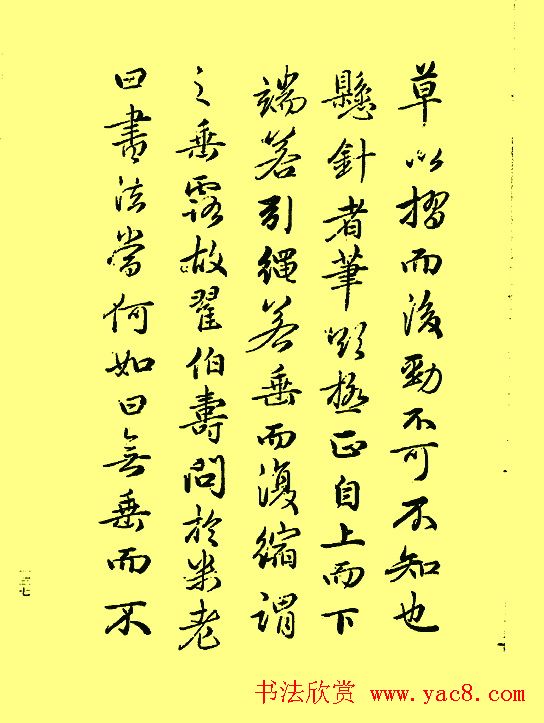 草以摺而後勁不可不知也
懸針者筆欲極正自上而下
端若引繩若垂而復縮謂
之垂露故翟伯壽問於米老
曰書法當何如曰無垂而不
书法欣赏 www.yac8.com